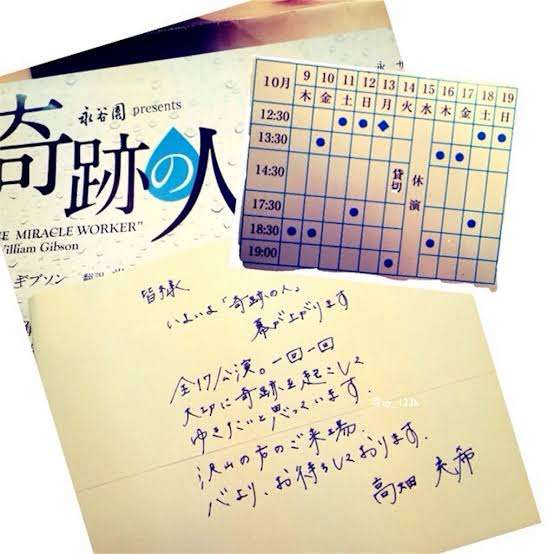 永谷園 presents
奇跡の人
E MIRACLE WORKER"
William Gibson
ギブソン
10月 9 10 11 12 13 14 15 16 17 18 19
木 金 土 日 月 火 水 木 金 土 日
12:30 ● ● ◆ ● ●
13:30 ● ● ●
14:30 貸切 休演
17:30 ● ●
18:30 ● ● ●
19:00 ●
皆様へ
いよいよ「奇跡の人」
幕が上がります
全17公演。一回一回
大切に奇跡を起こして
ゆきたいと思っています。
沢山の方のご来場、
心より、お待ちしております。
高畑 充希